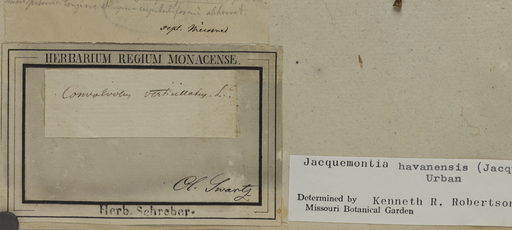 sept. Microsc
HERBARIUM REGIUM MONACENSE.
Convolvulus verticillatus. L.
Ol. Swartz
Herb. Schreber.
Jacquemontia havanensis (Jacq
Urban
Determined by Kenneth R. Robertson
Missouri Botanical Garden